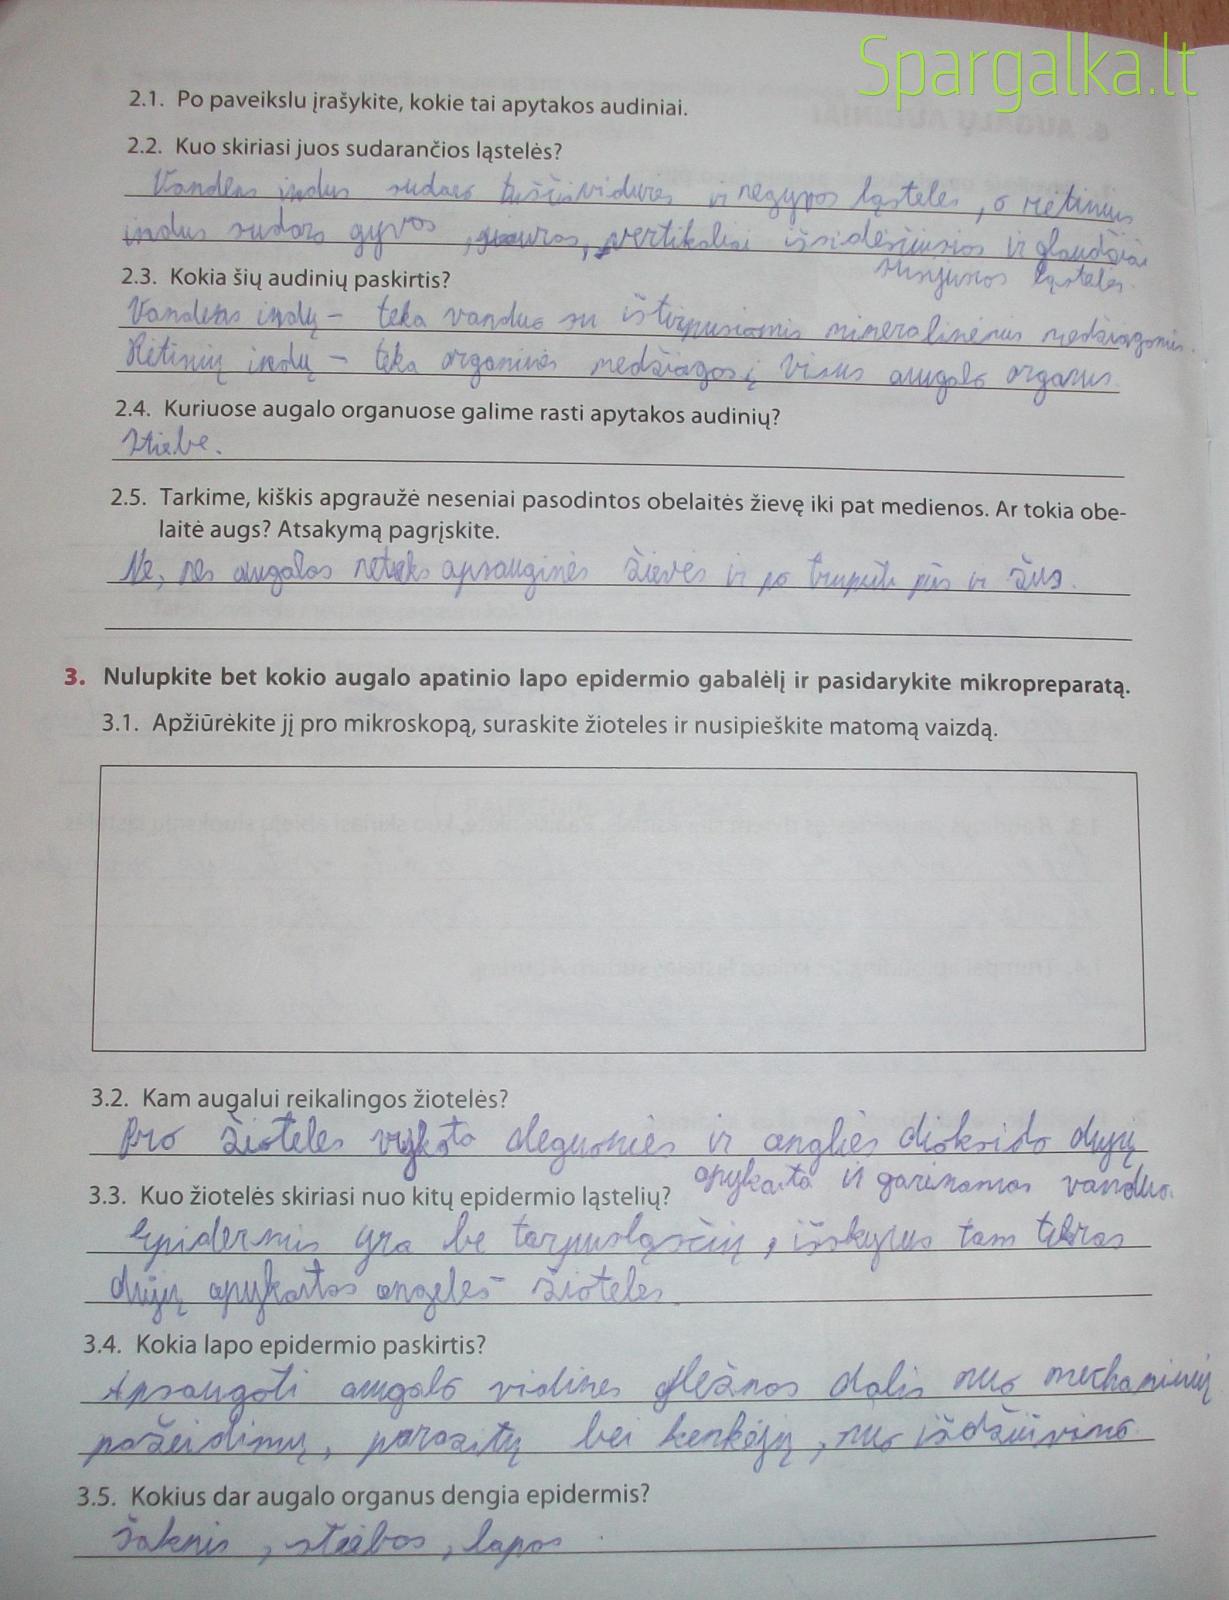 Spargalka.lt
2.1. Po paveikslu įrašykite, kokie tai apytakos audiniai.
2.2. Kuo skiriasi juos sudarančios ląstelės?
Vandens indus sudaro tuščiavidurės ir negyvos ląstelės, o rėtinius
indus sudaro gyvos, , vertikaliai išsidėsčiusios ir glaudžiai
susijusios ląstelės.
2.3. Kokia šių audinių paskirtis?
Vandens indų – teka vanduo su ištirpusiomis mineralinėmis medžiagomis.
Rėtinių indų – teka organinės medžiagos į visus augalo organus.
2.4. Kuriuose augalo organuose galime rasti apytakos audinių?
Stiebe.
2.5. Tarkime, kiškis apgraužė neseniai pasodintos obelaitės žievę iki pat medienos. Ar tokia obe-
laitė augs? Atsakymą pagrįskite.
Ne, nes augalas neteks apsauginės žievės ir po truputi pus ir žus.
3. Nulupkite bet kokio augalo apatinio lapo epidermio gabalėlį ir pasidarykite mikropreparatą.
3.1. Apžiūrėkite jį pro mikroskopą, suraskite žioteles ir nusipieškite matomą vaizdą.
3.2. Kam augalui reikalingos žiotelės?
Pro žioteles vyksta deguonies ir anglies dioksido dujų
apykaita ir garinamas vanduo.
3.3. Kuo žiotelės skiriasi nuo kitų epidermio ląstelių?
Epidermis yra be tarpuląsčių, išskyrus tam tikras
dujų apykaitos angeles – žioteles.
3.4. Kokia lapo epidermio paskirtis?
Apsaugoti augalo vidines gležnas dalis nuo mechaninių
pažeidimų, parazitų bei kenkėjų, nuo išdžiūvimo.
3.5. Kokius dar augalo organus dengia epidermis?
šaknis, stiebas, lapas